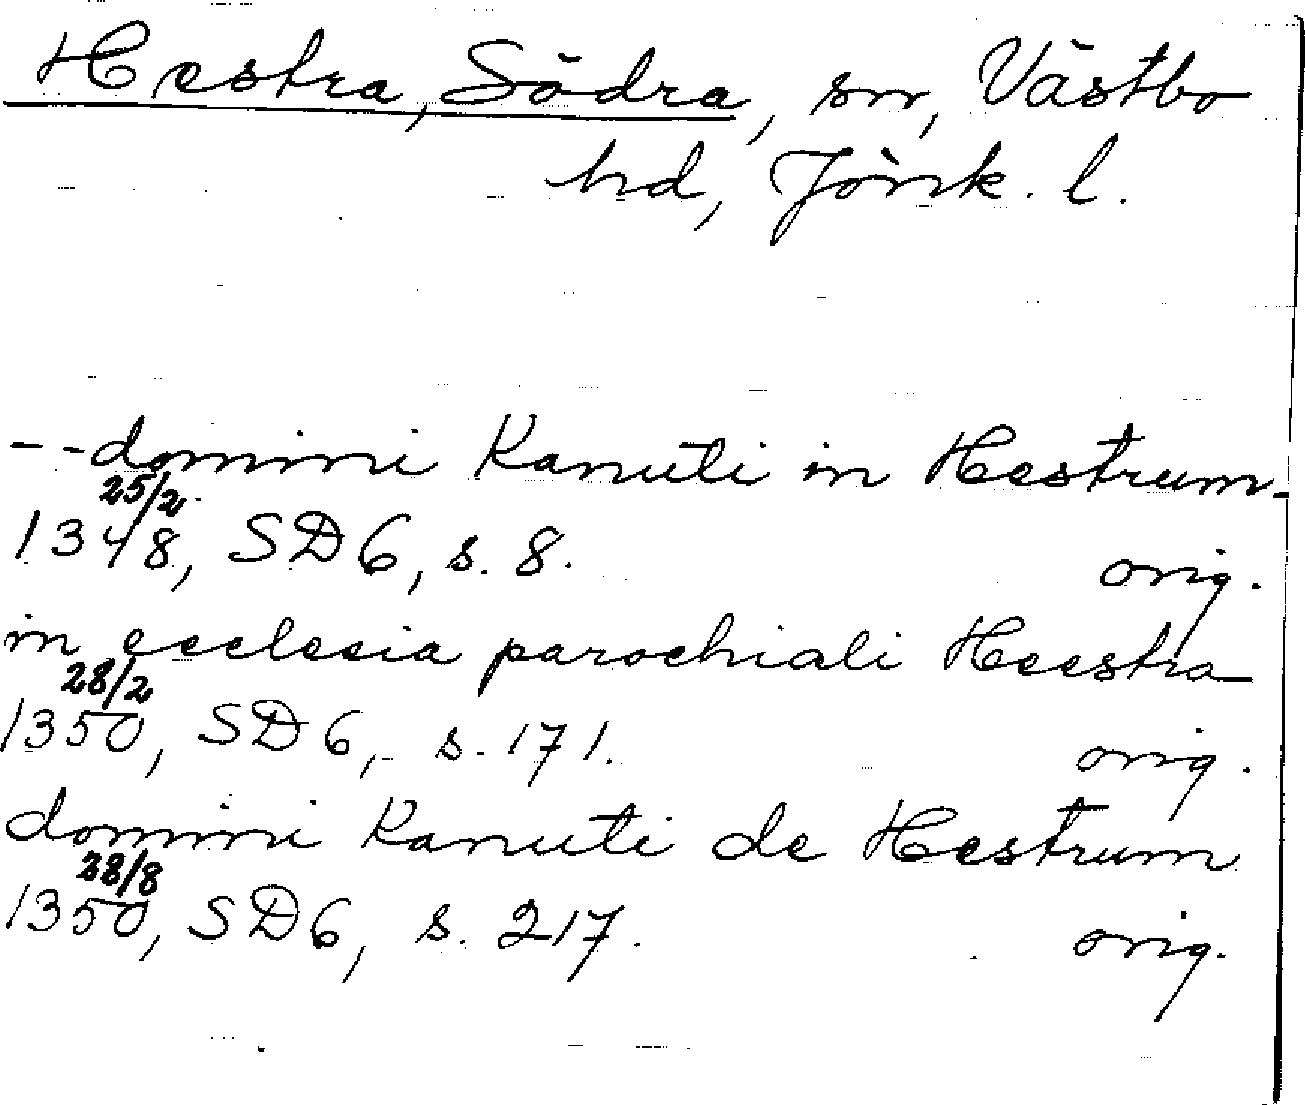 Hestra, Södra, sn, Västbo
hd, Jönk. l.
- - domini Kanuti in Hestrum
25/2
1348, SD 6, s. 8. orig.
in ecclesia parochiali Heestra
28/2
1350, SD 6, s. 171. orig.
domini Kanuti de Hestrum
28/8
1350, SD 6, s. 217. orig.